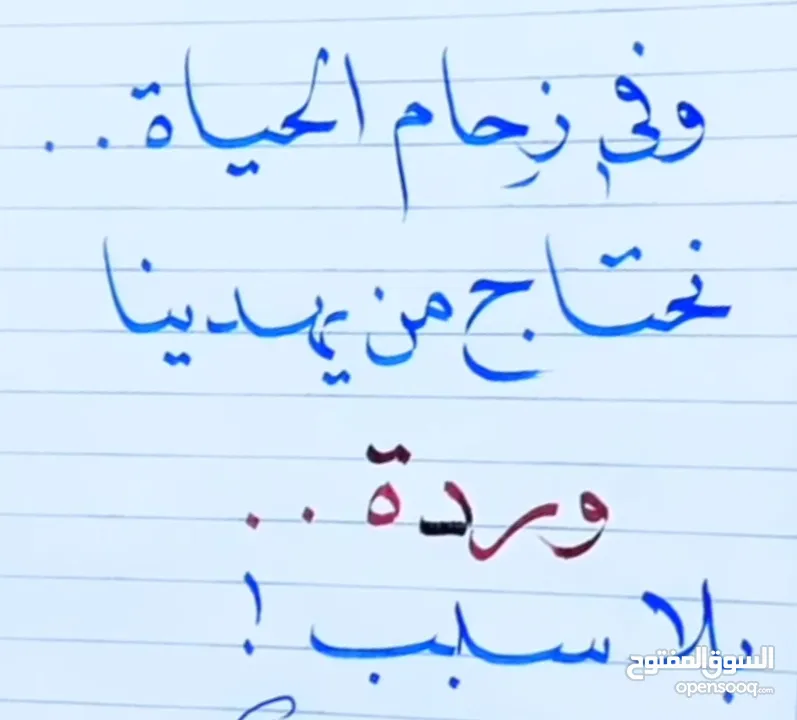 وفي زِحام الحياة..
نحتاج من يهدينا
وردة..
بلا سبب !
السوق المفتوح
opensooq.com